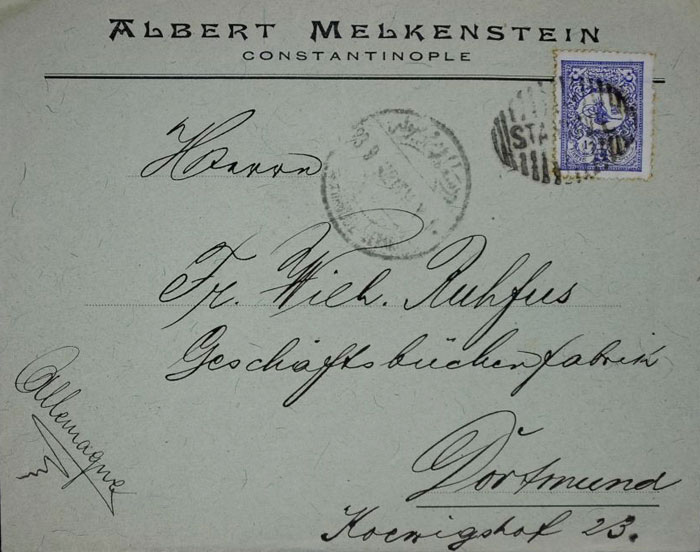 ALBERT MELKENSTEIN
CONSTANTINOPLE
Herrn
Fr. Wilh. Ruhfus
Geschäftsbücherfabrik
Dortmund
Koenigshof 23.
Allemagne